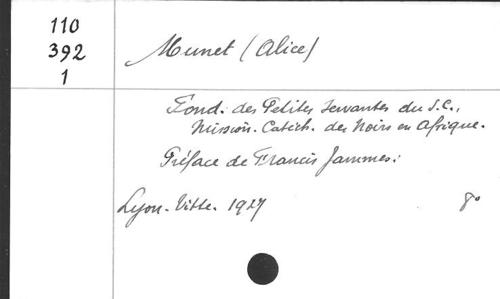 110
392
1
Munet (Alice)
Fond. des Petites Servantes du S.C.,
Mission. Catéch. des Noirs en Afrique.
Préface de Francis Jammes.
Lyon. Vitte. 1927
8°